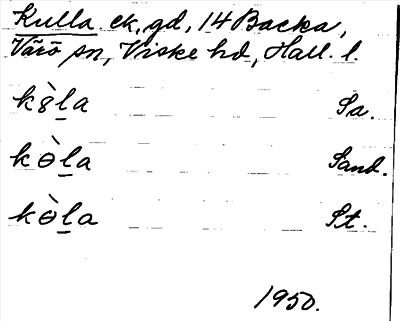 Kulla ek, gd, 14 Backa,
Värö sn, Viske hd, Hall. l.
kɞ̀l̲a Sa.
kɵ̀l̲a Sand.
kɵ̀l̲a St.
1950.